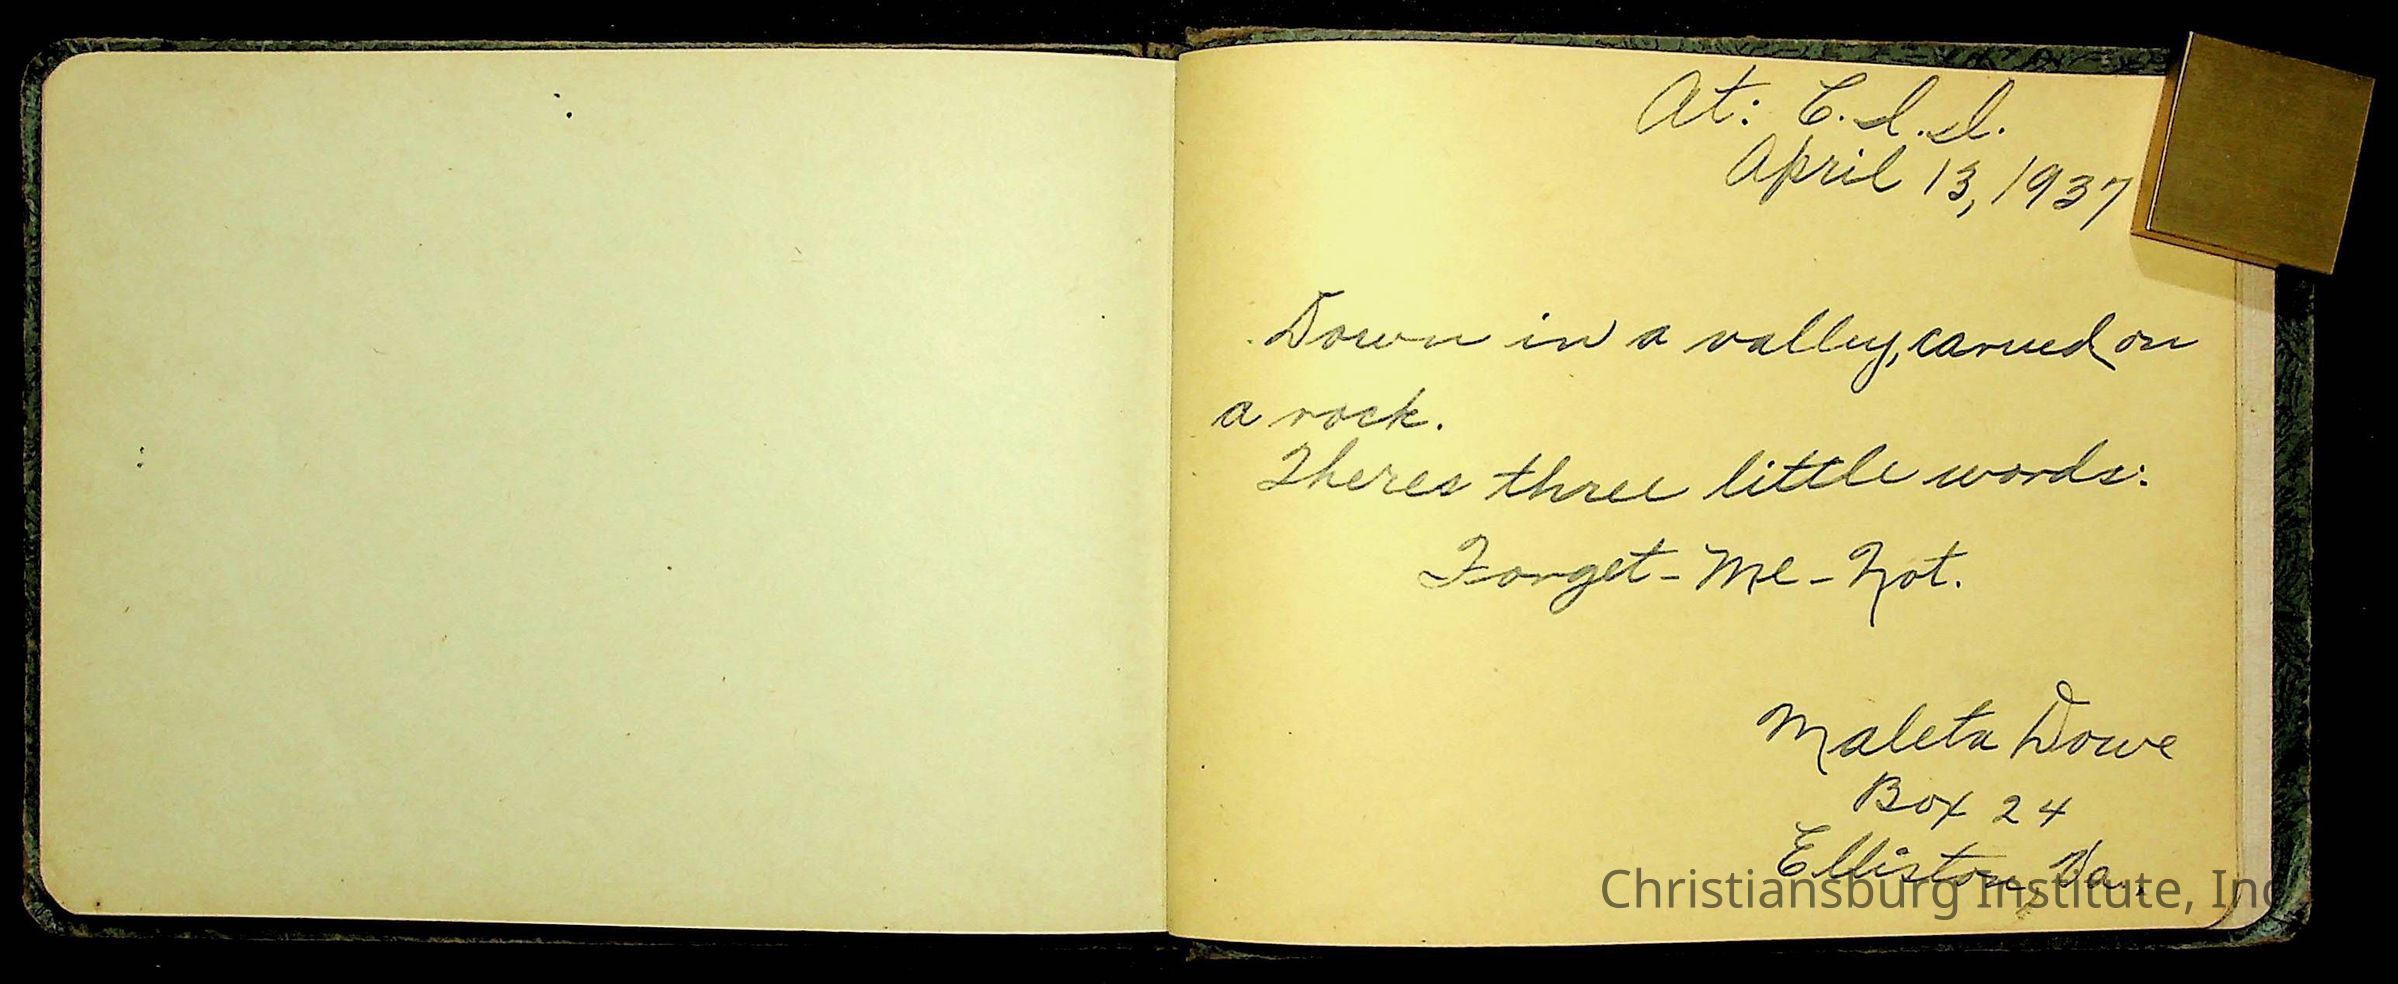 At: C.I.I.
April 13, 1937
Down in a valley, carved on
a rock.
Theres three little words:
Forget-Me-Not.
Maleta Dowe
Box 24
Elliston, Va.
Christiansburg Institute, Inc